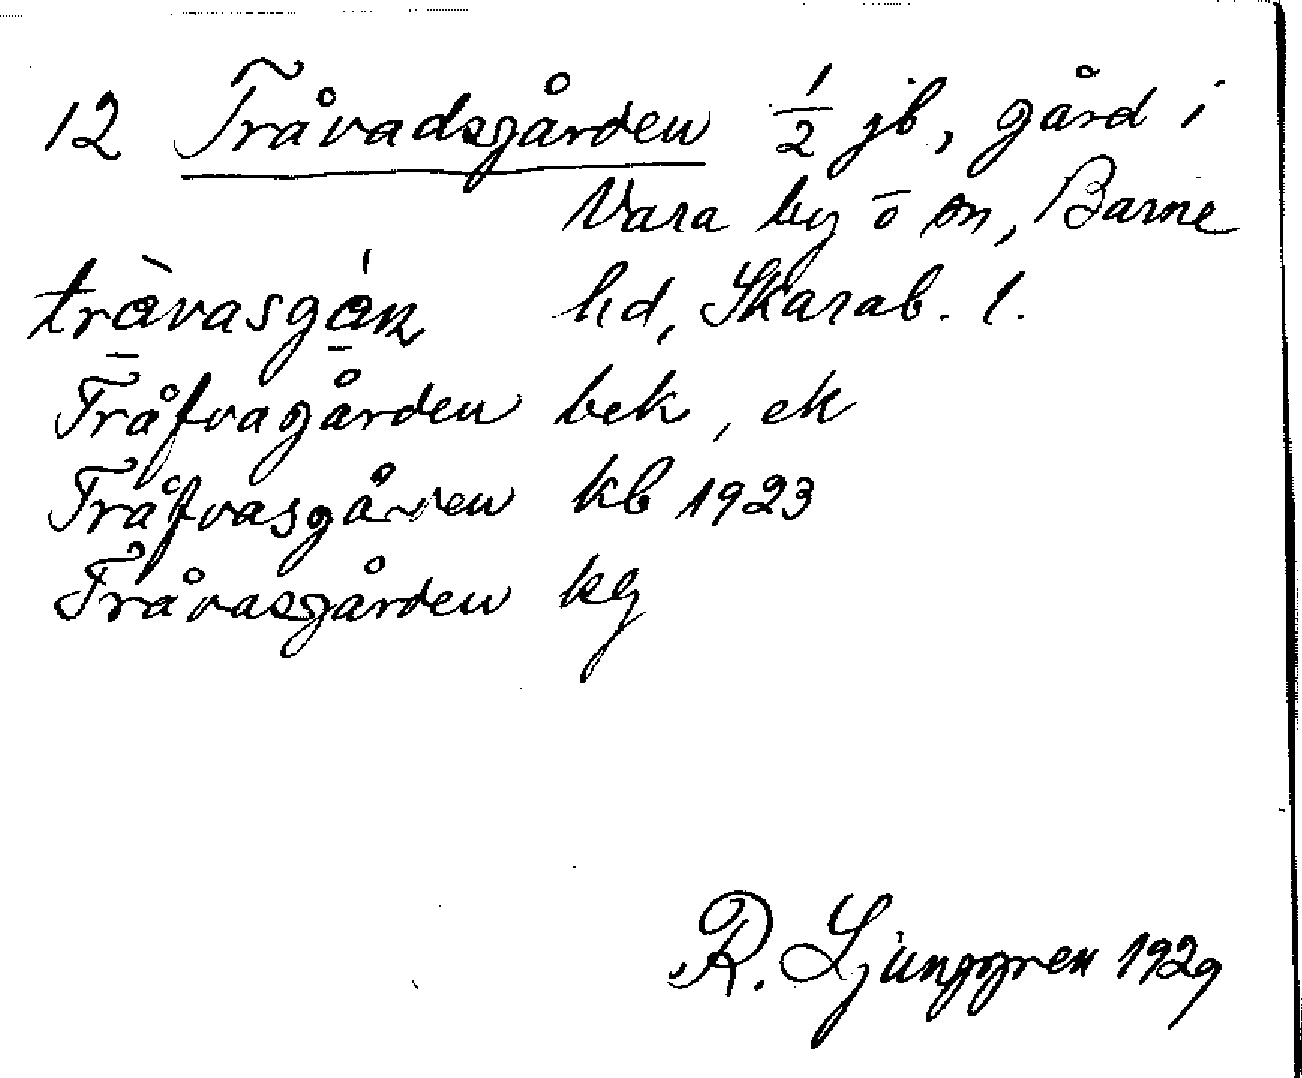 12 Tråvadsgården 1/2 jb, gård i
Vara by o sn, Barne
tràvasgán hd, Skarab. l.
Tråfvagården bek, ek
Tråfvasgården kb 1923
Tråvasgården kg
R. Ljunggren 1929